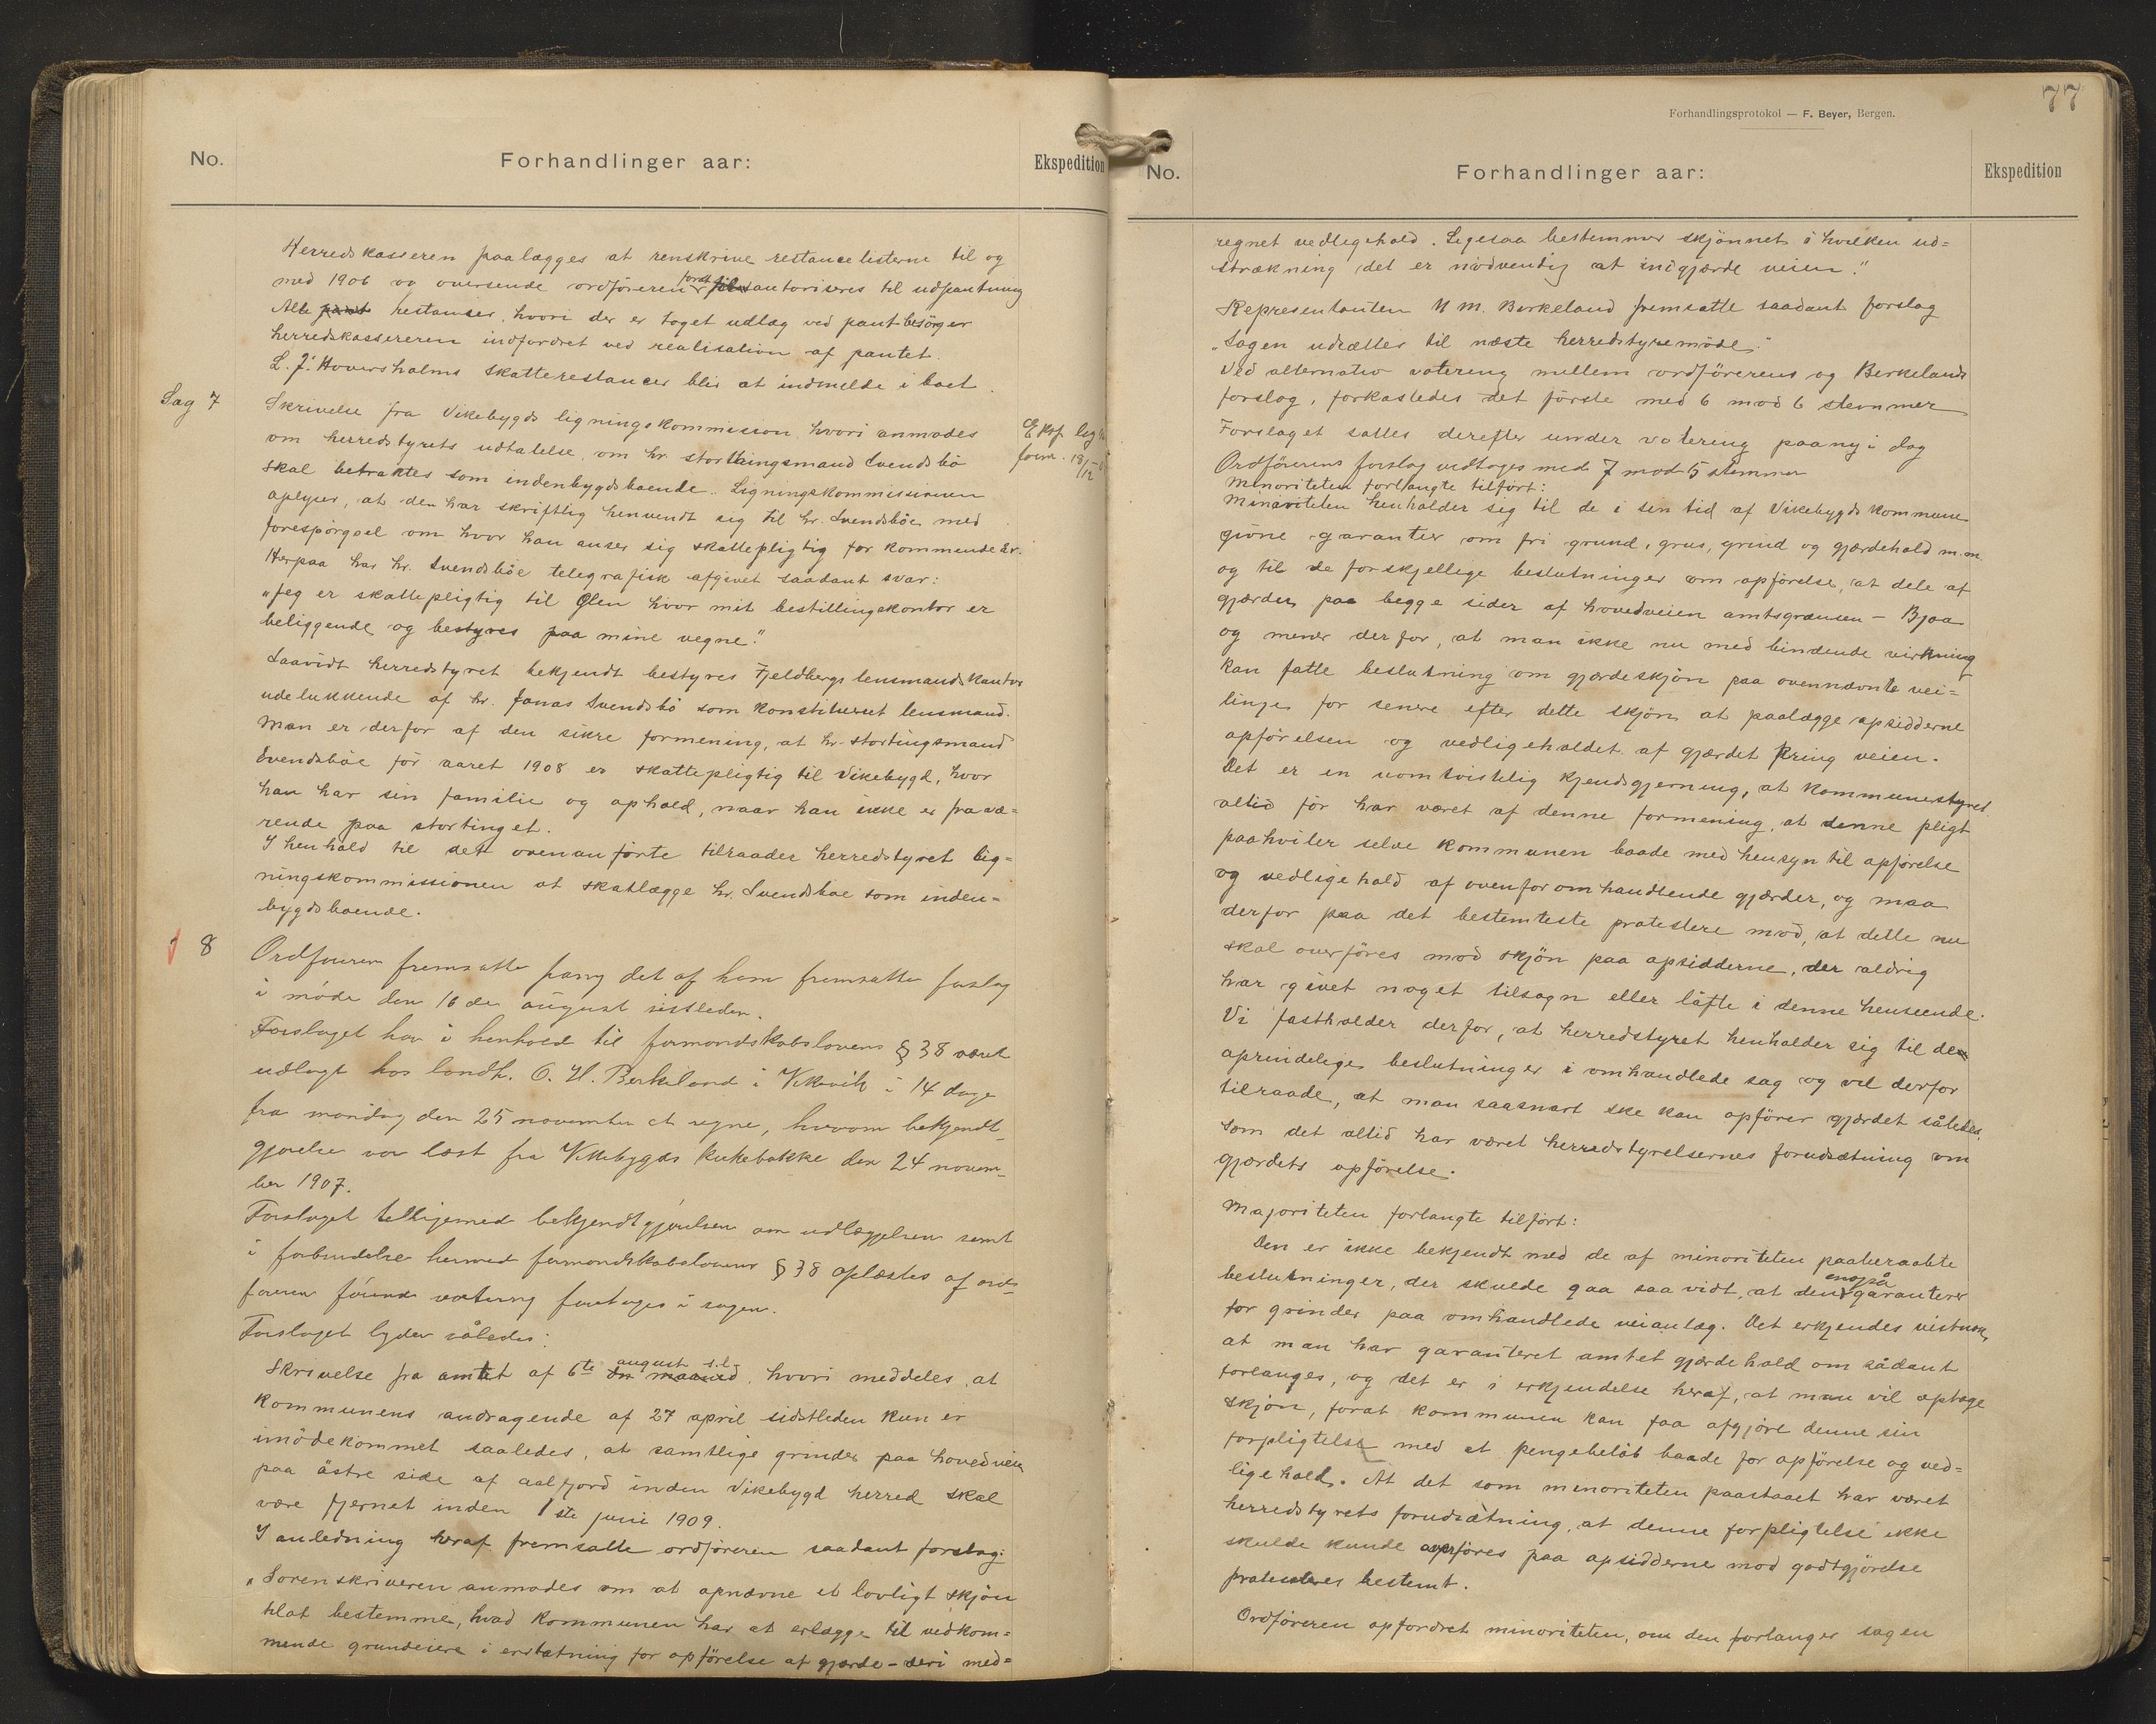 No.
Forhandlinger aar:
Ekspedition
Herredskasseren paalægges at renskrive restancelisterne til og
med 1906 og oversende ordføreren forat autoriseres til udpantning
Alle restanser, hvori der er toget udlæg ved pant besörger
herredskassereren indfordret ved realisation af pantet.
L. J. Hoversholms skatterestancer blir at indmelde i boet.
Sag 7
Skrivelse fra Vikebygds ligningskommission hvori anmodes
om herredstyrets udtalelse, om hr. storthingsmand Svendsbö
skal betraktes som indenbygdsboende. Ligningskommissionen
oplyser, at den har skriftlig henvendt sig til hr. Svendsböe med
forespörgsel om hvor han anser sig skattepligtig for kommende år.
Herpaa har hr. Svendsböe telegrafisk afgivet saadant svar:
"Jeg er skattepligtig til Ølen hvor mit bestillingskontor er
beliggende og bestyres paa mine vegne."
Saavidt herredstyret bekjendt bestyres Fjeldbergs lensmandskontor
udelukkende af hr. Jonas Svendsbö som konstitueret lensmand.
Man er derfor af den sikre formening, at hr. stortingsmand
Svendsböe for aaret 1908 er skattepligtig til Vikebygd, hvor
han har sin familie og ophold, naar han ikke er fravæ=
rende paa stortinget.
I henhold til det ovenanförte tilraader herredstyret lig=
ningskommissionen at skatlægge hr. Svendsboe som inden=
bygdsboende.
Eksp. lig
form. 18/12
8
Ordføreren fremsatte pany det af ham fremsatte forslag
i møde den 16de august sistleden.
Forslaget har i henhold til formandskabslovens § 38 været
udlagt hos landh. O. H. Berkeland i Vikevik i 14 dage
fra mandag den 25 november at regne, hvorom bekjendt-
gjørelse var læst fra Vikebygds kirkebakke den 24 novem-
ber 1907.
Forslaget tilligemed bekjendtgjørelsen om udlæggelsen samt
i forbindelse hermed formandskabslovens § 38 oplæstes af ord-
føreren førend votering foretages i sagen.
Forslaget lyder således:
Skrivelse fra amtet af 6te den maaned august s.l. hvori meddeles, at
kommunens andragende af 27 april sidstleden kun er
imödekommet saaledes, at samtlige grinder paa hovedveien
paa östre side af aalfjord inden Vikebygd herred skal
være fjernet inden 1ste juni 1909.
I anledning heraf fremsatte ordföreren saadant forslag:
"Sorenskriveren anmodes om at opnævne et lovligt skjön
tilat bestemme, hvad kommunen har at erlægge til vedkom=
mende grundeiere i erstatning for opförelse af gjærde - deri med=
77
Forhandlingsprotokol — F. Beyer, Bergen.
No.
Forhandlinger aar:
Ekspedition
regnet vedligehold. Ligesaa bestemmer skjönnet i hvilken ud=
strækning det er nödvendig at indgjærde veien."
Representanten M M. Berkeland fremsatte saadant forslag
"Sagen udsættes til næste herredstyremöde."
Ved alternativ votering mellem ordförerens og Berkelands
forslag, forkastedes det förste med 6 mod 6 stemmer
Forslaget sattes derefter under votering paany i dag
Ordförerens forslag vedtoges med 7 mod 5 stemmer
Minoriteten forlangte tilfört:
Minoriteten henholder sig til de i sin tid af Vikebygds kommune
givne garantier om fri grund, grus, grind og gjærdehold m.m.
og til de forskjellige beslutninger om opförelse, at dele af
gjærder paa begge sider af hovedveien amtsgrænsen - Bjoa
og mener derfor, at man ikke nu med bindende virkning
kan fatte beslutning om gjærdeskjön paa ovennævnte vei=
linje for senere efter dette skjön at paalægge opsidderne
opförelsen og vedligeholdet af gjærdet kring veien.
Det er en uomtvistelig kjendsgjerning, at kommunestyret
altid för har været af denne formening, at denne pligt
paahviler selve kommunen baade med hensyn til opförelse
og vedligehold af ovenfor omhandlende gjærder, og maa
derfor paa det bestemteste protestere mod, at dette nu
skal overföres mod skjön paa opsidderne, der aldrig
har givet noget tilsagn eller löfte i denne henseende.
Vi fastholder derfor, at herredstyret henholder sig til de
oprindelige beslutninger i omhandlede sag og vil derfor
tilraade, at man saasnart ske kan opförer gjærdet således,
som det altid har været herredstyrelsernes forudsætning om
gjærdets opförelse.
Majoriteten forlangte tilfört:
Den er ikke bekjendt med de af minoriteten paaberaabte
beslutninger, der skulde gaa saa vidt, at den også garanterer
for grinder paa omhandlede veianlæg. Det erkjendes vistnok,
at man har garanteret amtet gjærdehold om sådant
forlanges, og det er i erkjendelse heraf, at man vil optage
skjön, forat kommunen kan faa afgjöre denne sin
forpligtelse med et pengebelöb baade for opförelse og ved=
ligehold. At det som minoriteten paastaaet har været
herredstyrets forudsætning, at denne forpligtelse ikke
skulde kunde overföres paa opsidderne mod godtgjörelse
protesteres bestemt.
Ordföreren opfordret minoriteten, om den forlanger sagen